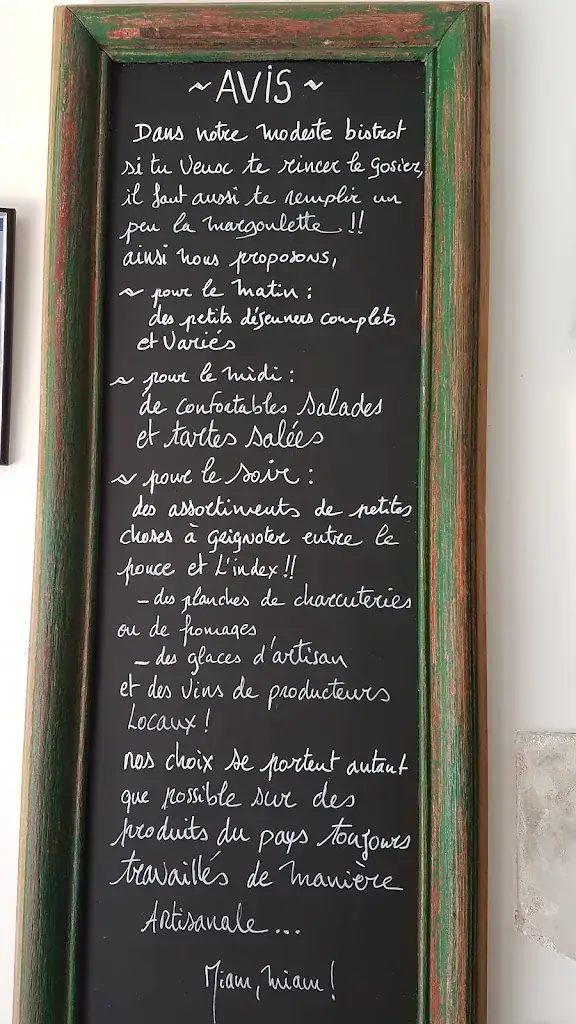 ~ AVIS ~
Dans notre modeste bistrot
si tu veux te rincer le gosier,
il faut aussi te remplir un
peu la margoulette !!
ainsi nous proposons,
~ pour le matin :
des petits déjeuners complets
et variés
~ pour le midi :
de confortables salades
et tartes salées
~ pour le soir :
des assortiments de petites
choses à grignoter entre le
pouce et l'index !!
- des planches de charcuteries
ou de fromages,
- des glaces d'artisan
et des vins de producteurs
Locaux !
nos choix se portent autant
que possible sur des
produits du pays toujours
travaillés de manière
Artisanale ...
Miam, miam !